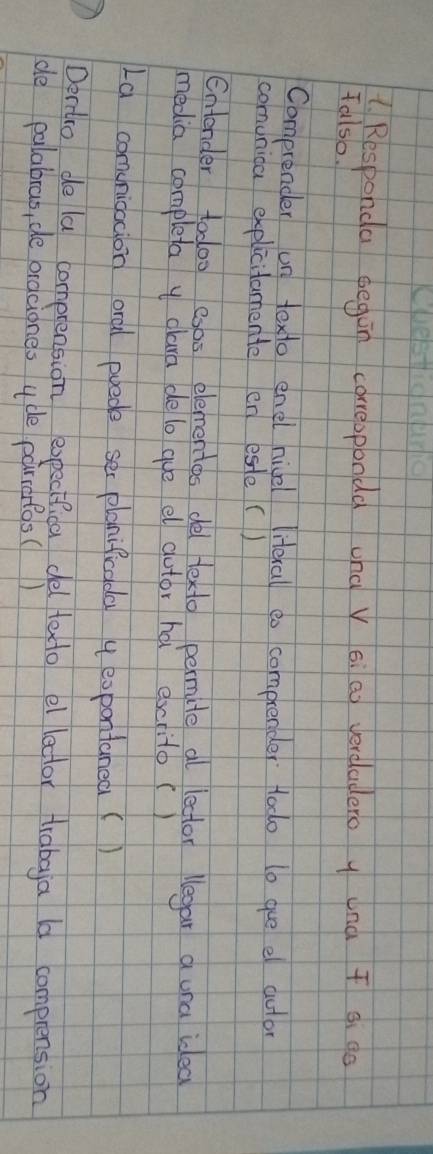 Cuestionario
1. Responda según corresponda una V si es verdadero y una F si es
Falso.
Comprender un texto en el nivel literal es comprender todo lo que el autor
comunica explícitamente en este ( )
Entender todos esos elementos del texto permite al lector llegar a una idea
media completa y clara de lo que el autor ha escrito ( )
La comunicación oral puede ser planificada y espontanea ( )
Dentro de la comprension especifica del texto el lector trabaja la comprension
de palabras, de oraciones y de párrafos ( )